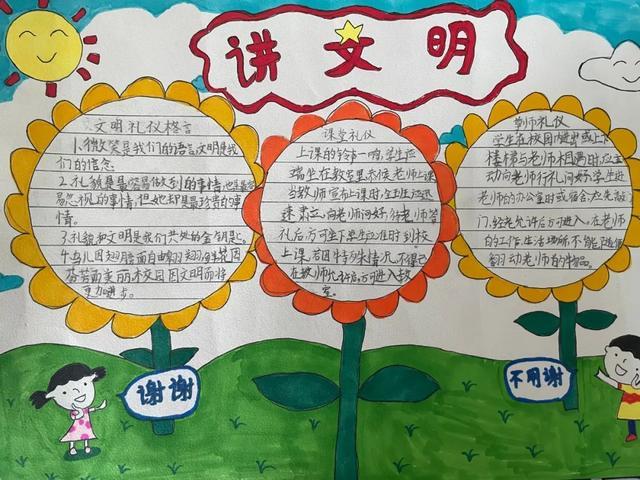 讲文明
文明礼仪格言
1.微笑是我们的语言文明是我
们的信念
2.礼貌是最容易做到的事情,也是最容
易忽视的事情,但她却是最珍贵的事
情。
3.礼貌和文明是我们共处的金钥匙。
4.鸟儿因翅膀而自由翱翔,鲜花因
芬芳而美丽,校园因文明而将
更加进步。
课堂礼仪
上课的铃声一响,学生应
端坐在教室里,恭候老师上课
当教师宣布上课时,全班应迅
速肃立,向老师问好,待老师答
礼后,方可坐下学生应准时到校
上课,若因特殊情况,不得已
在教师允许后,方可进入教
室。
学生在校园内进出或上下
楼梯与老师相遇时,应主
动向老师行礼问好.学生进
老师的办公室时或宿舍,应先敲
门,经老师允许后方可进入,在老师
的工作.生活场所不能随便
翻动老师的物品。
谢谢
不用谢